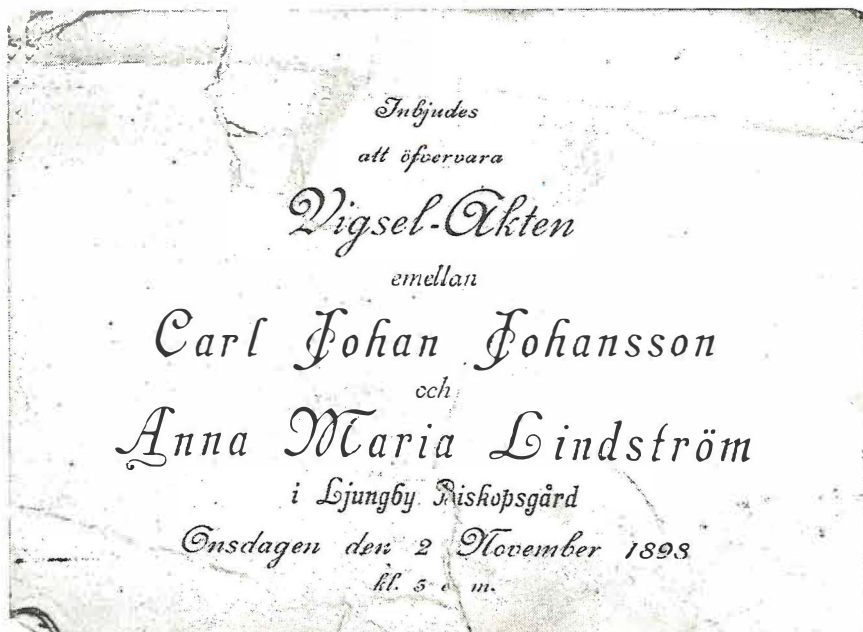 Inbjudes
att öfvervara
Vigsel-Akten
emellan
Carl Johan Johansson
och
Anna Maria Lindström
i Ljungby Biskopsgård
Onsdagen den 2 November 1898
kl. 5 e m.